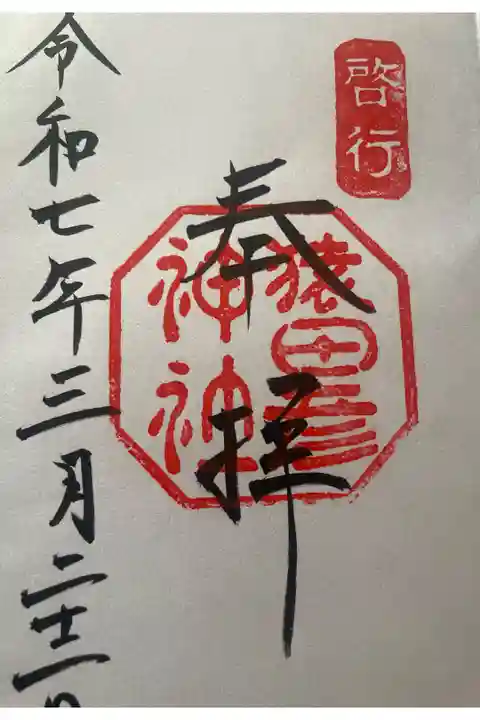 啓行
奉拝
猿田彦
神社
令和七年三月二十二日